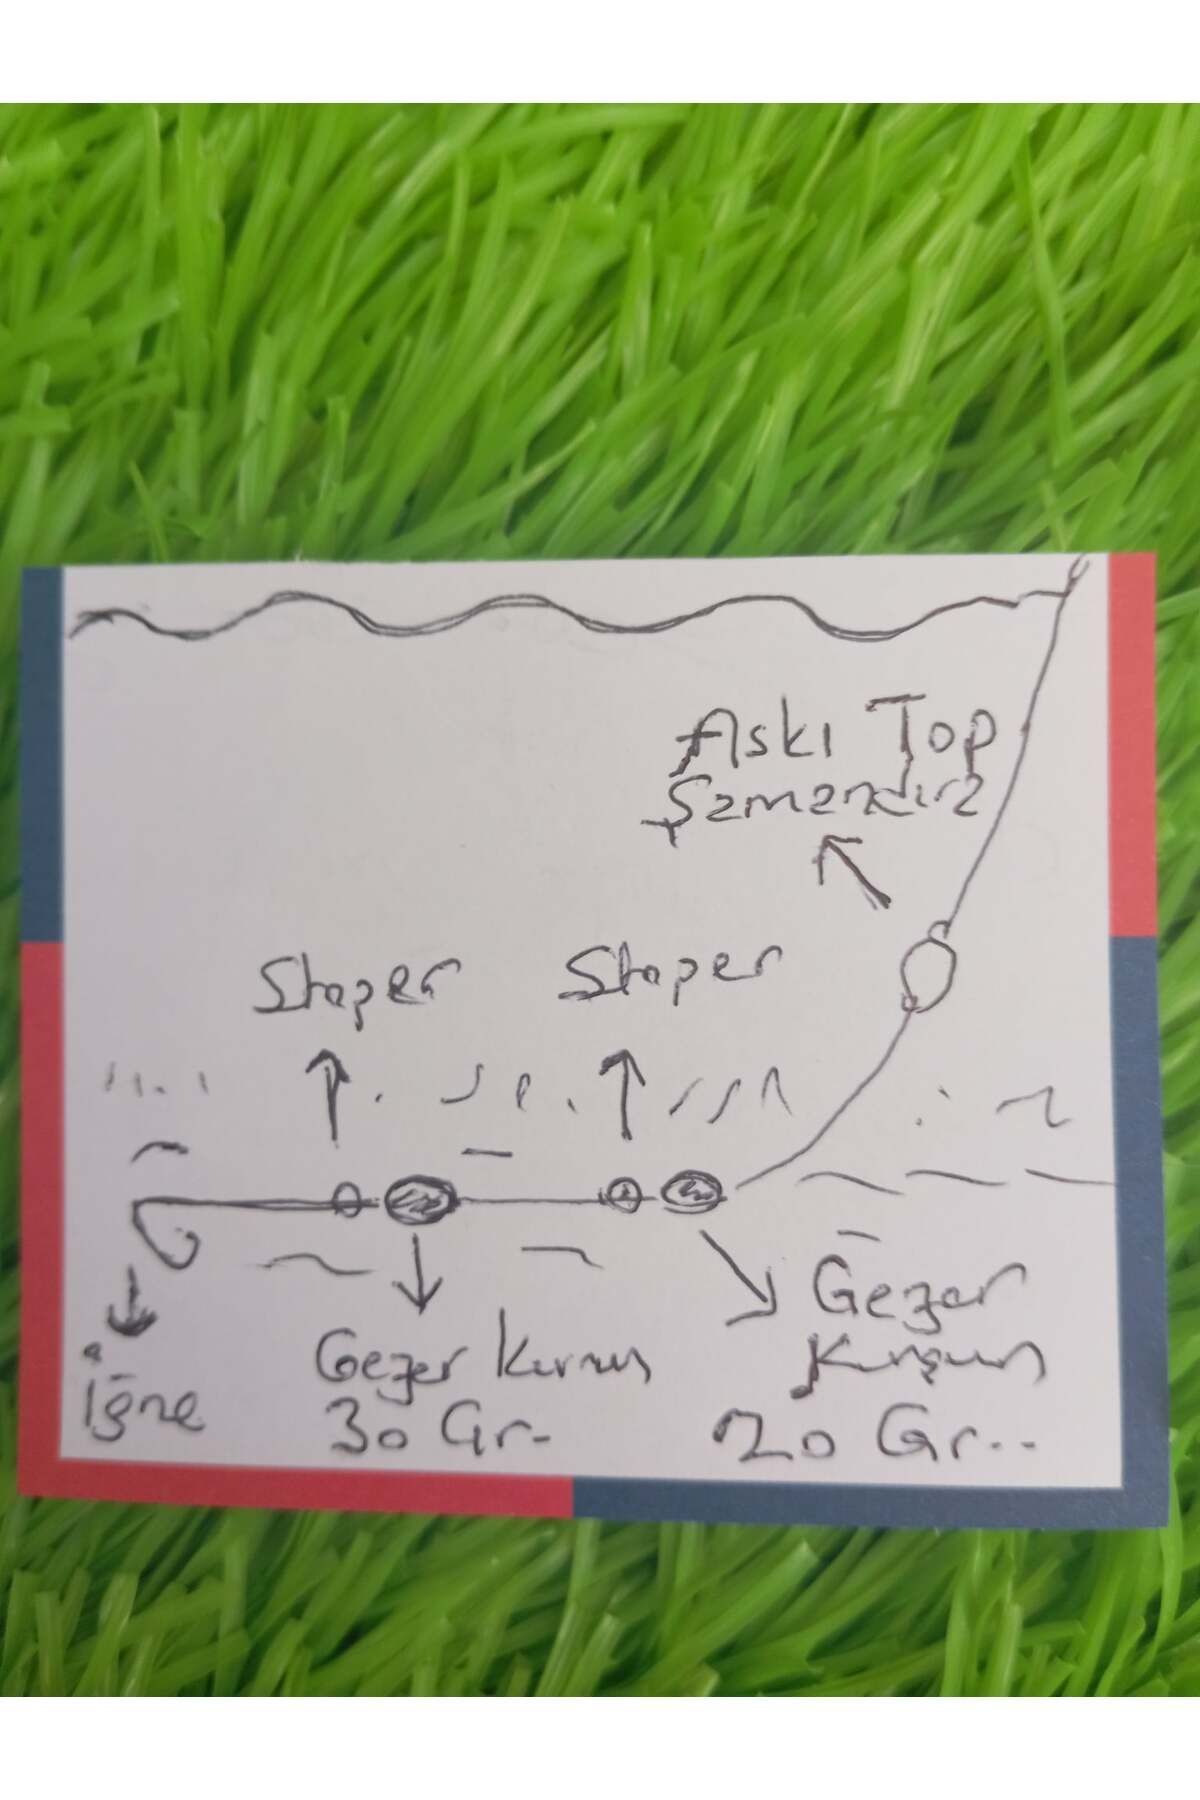 Askı Top
Şamandıra
Stoper
Stoper
İğne
Gezer Kurşun
30 Gr.
Gezer
Kurşun
20 Gr..